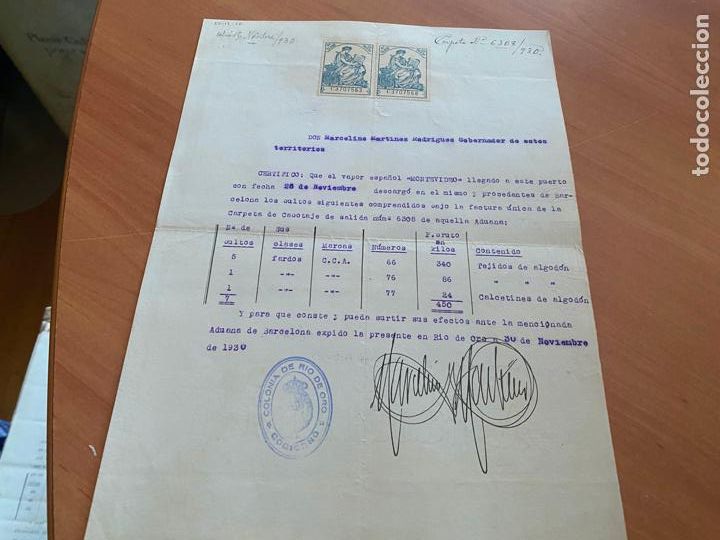 Carpeta Nº 6308/930.
1.3707563 1.3707564
DON Marcelino Martinez Rodriguez Gobernador de estos
territorios
CERTIFICO: Que el vapor español «MONTEVIDEO» llegado a este puerto
con fecha 28 de Noviembre descargó en el mismo y procedentes de Bar-
celona los bultos siguientes comprendidos bajo la factura única de la
Carpeta de Cabotaje de salida núm= 6308 de aquella Aduana:
Nº de sus P.bruto en
bultos clases Marcas Números kilos Contenido
5 fardos C.C.A. 66 340 Tejidos de algodón
1 -"- -"- 76 86 " " "
1 -"- -"- 77 24 Calcetines de algodón
7 450
Y para que conste y pueda surtir sus efectos ante la mencionada
Aduana de Barcelona expido la presente en Rio de Oro a 30 de Noviembre
de 1930
COLONIA DE RIO DE ORO
GOBIERNO
todocoleccion.net